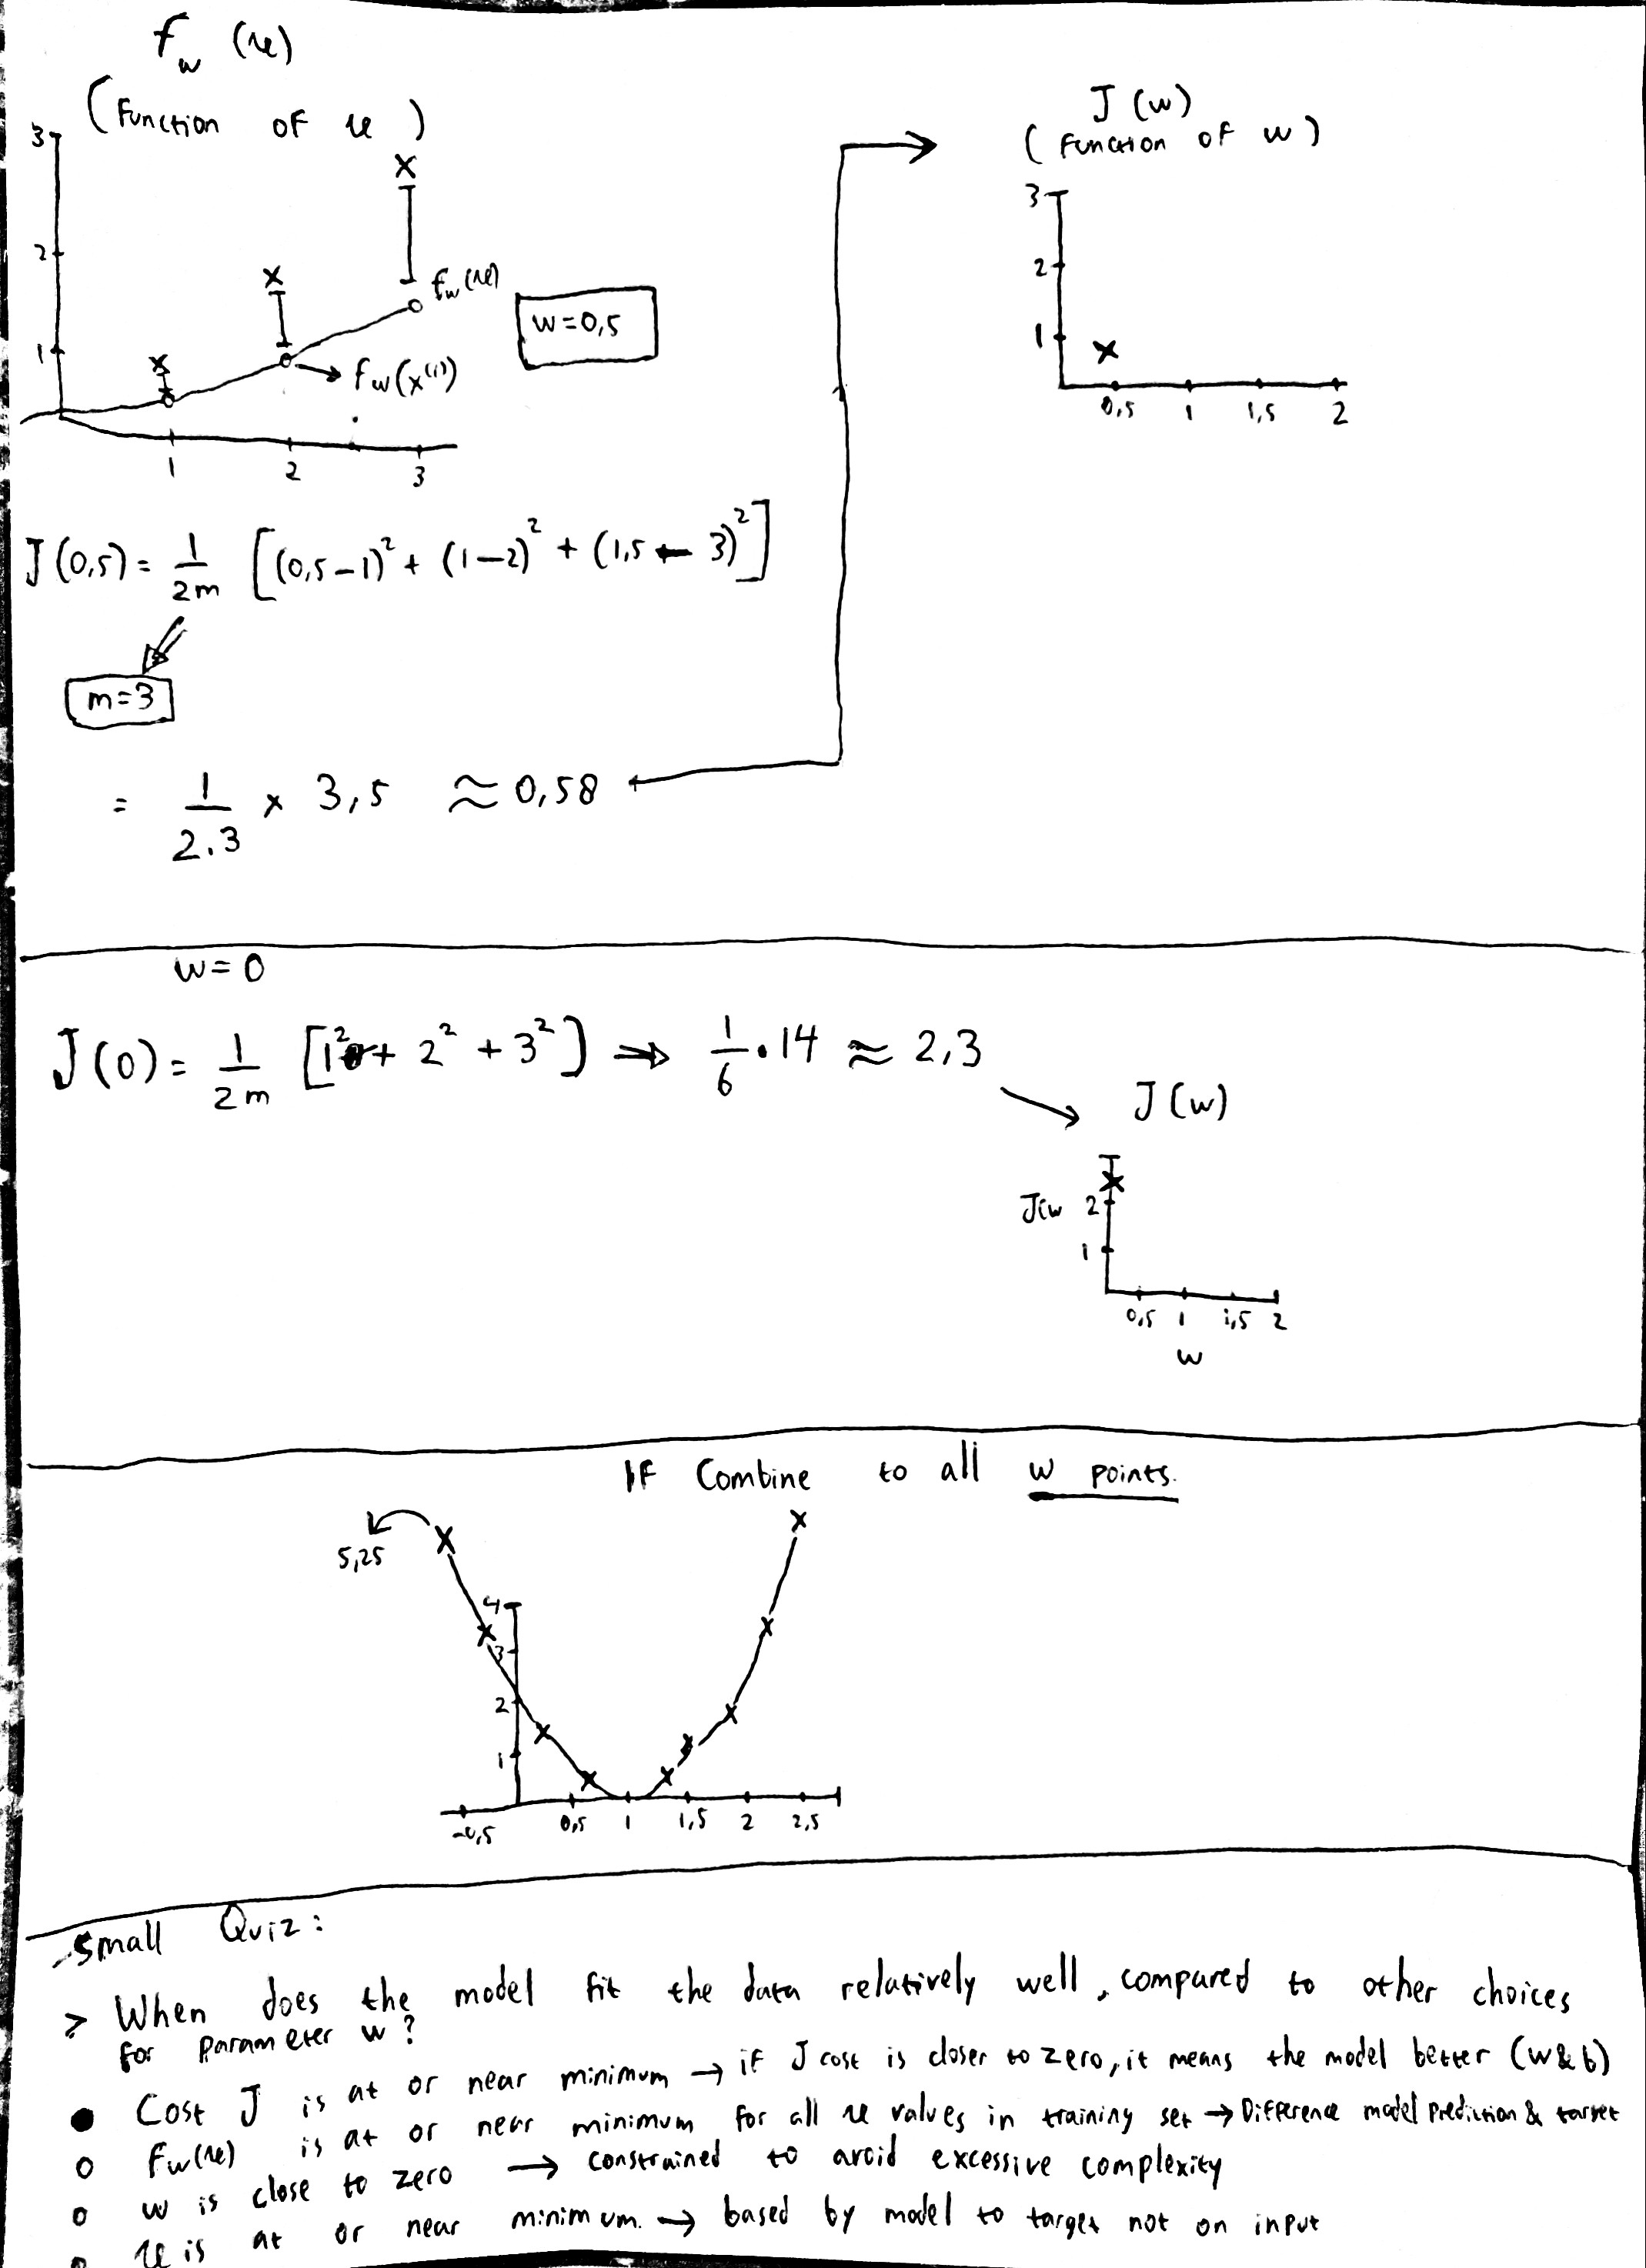 f_w (x)
(Function of x)
3
2
1
1 2 3
f_w(x)
w=0,5
f_w(x^(i))
J(w)
(Function of w)
3
2
1
0,5 1 1,5 2
J(0,5) = 1/2m [(0,5-1)² + (1-2)² + (1,5 - 3)²]
m=3
= 1/2.3 x 3,5 ≈ 0,58
w=0
J(0) = 1/2m [1² + 2² + 3²] ⇒ 1/6 . 14 ≈ 2,3
J(w)
J(w
2
1
0,5 1 1,5 2
w
If Combine to all w points.
5,25
4
3
2
1
-0,5 0,5 1 1,5 2 2,5
Small Quiz:
> When does the model fit the data relatively well, compared to other choices
for parameter w?
● Cost J is at or near minimum → if J cost is closer to zero, it means the model better (w&b)
○ Fw(x) is at or near minimum for all x values in training set → Difference model prediction & target
○ w is close to zero → constrained to avoid excessive complexity
○ x is at or near minimum. → based by model to target not on input